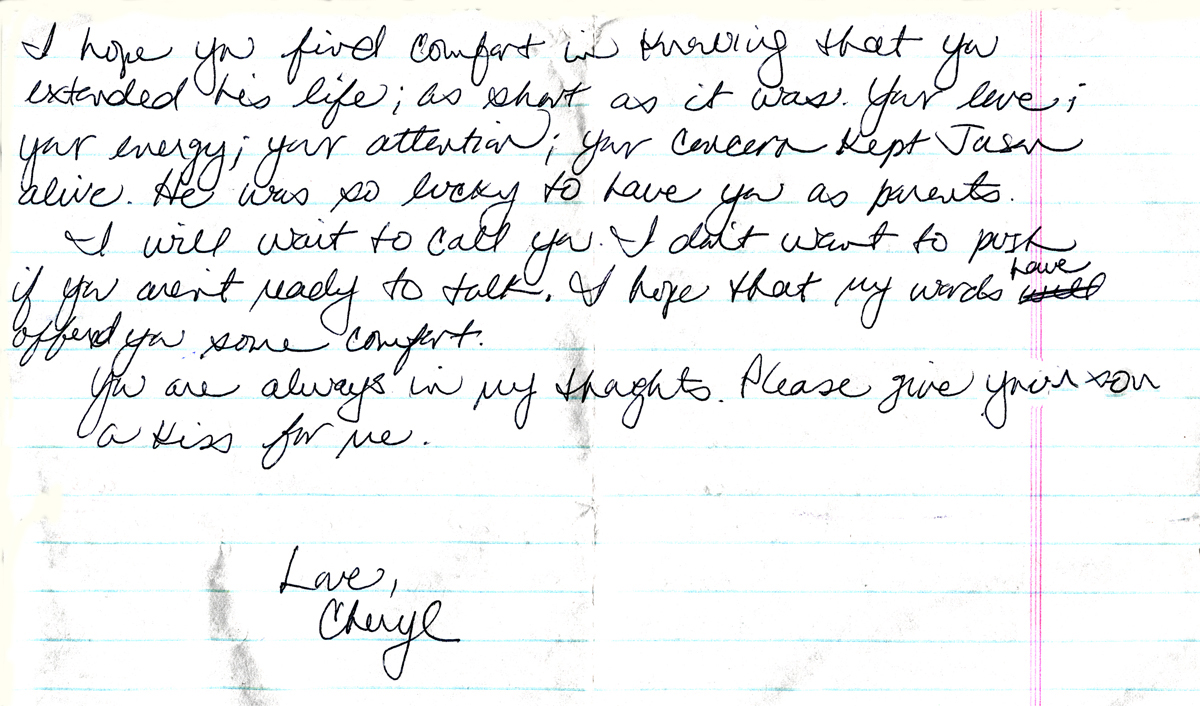 I hope you find comfort in knowing that you
extended his life; as short as it was. Your love;
your energy; your attention; your concern kept Jason
alive. He was so lucky to have you as parents.
I will wait to call you. I don't want to push
if you aren't ready to talk. I hope that my words have will
offered you some comfort.
You are always in my thoughts. Please give your son
a kiss for me.
Love,
Cheryl